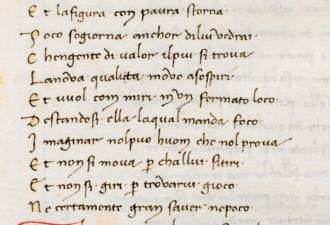 Et la figura con paura storna
Poco sogiorna anchor di lui vedrai
Che ngente di valor il piu si trova
La nova qualita move a sospiri
Et vuol com miri in un formato loco
Destandosi ella laqual manda foco
Imaginar nol puo huom che nol prova
Et non si mova per challui si tiri
Et non si giri per trovarvi gioco
Ne certamente gran saver ne poco